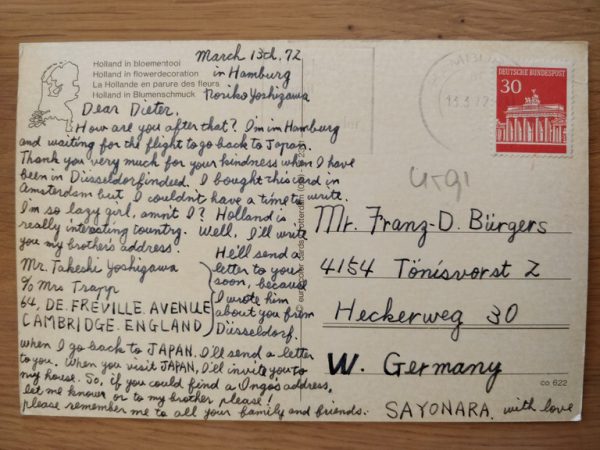 Holland in bloementooi
Holland in flowerdecoration
La Hollande en parure des fleurs
Holland in Blumenschmuck
March 13th, 72
in Hamburg
Noriko Yoshizawa
Dear Dieter,
How are you after that? I'm in Hamburg
and waiting for the flight to go back to Japan.
Thank you very much for your kindness when I have
been in Düsseldorf indeed. I bought this card in
Amsterdam but I couldn't have a time to write.
I'm so lazy girl, amn't I? Holland is
really interesting country. Well, I'll write
you my brother's address.
Mr. Takeshi Yoshizawa
c/o Mrs Trapp
64, DE. FREVILLE. AVENUE
CAMBRIDGE. ENGLAND
He'll send a
letter to you
soon, because
I wrote him
about you from
Düsseldorf.
when I go back to JAPAN, I'll send a letter
to you. When you visit JAPAN, I'll invite you to
my house. So, if you could find a Ingo's address,
let me know or to my brother please!
please remember me to all your family and friends.
SAYONARA. with love
DEUTSCHE BUNDESPOST
30
13.3.72
Mr. Franz-D. Bürgers
4154 Tönisvorst 2
Heckerweg 30
W. Germany
co 622